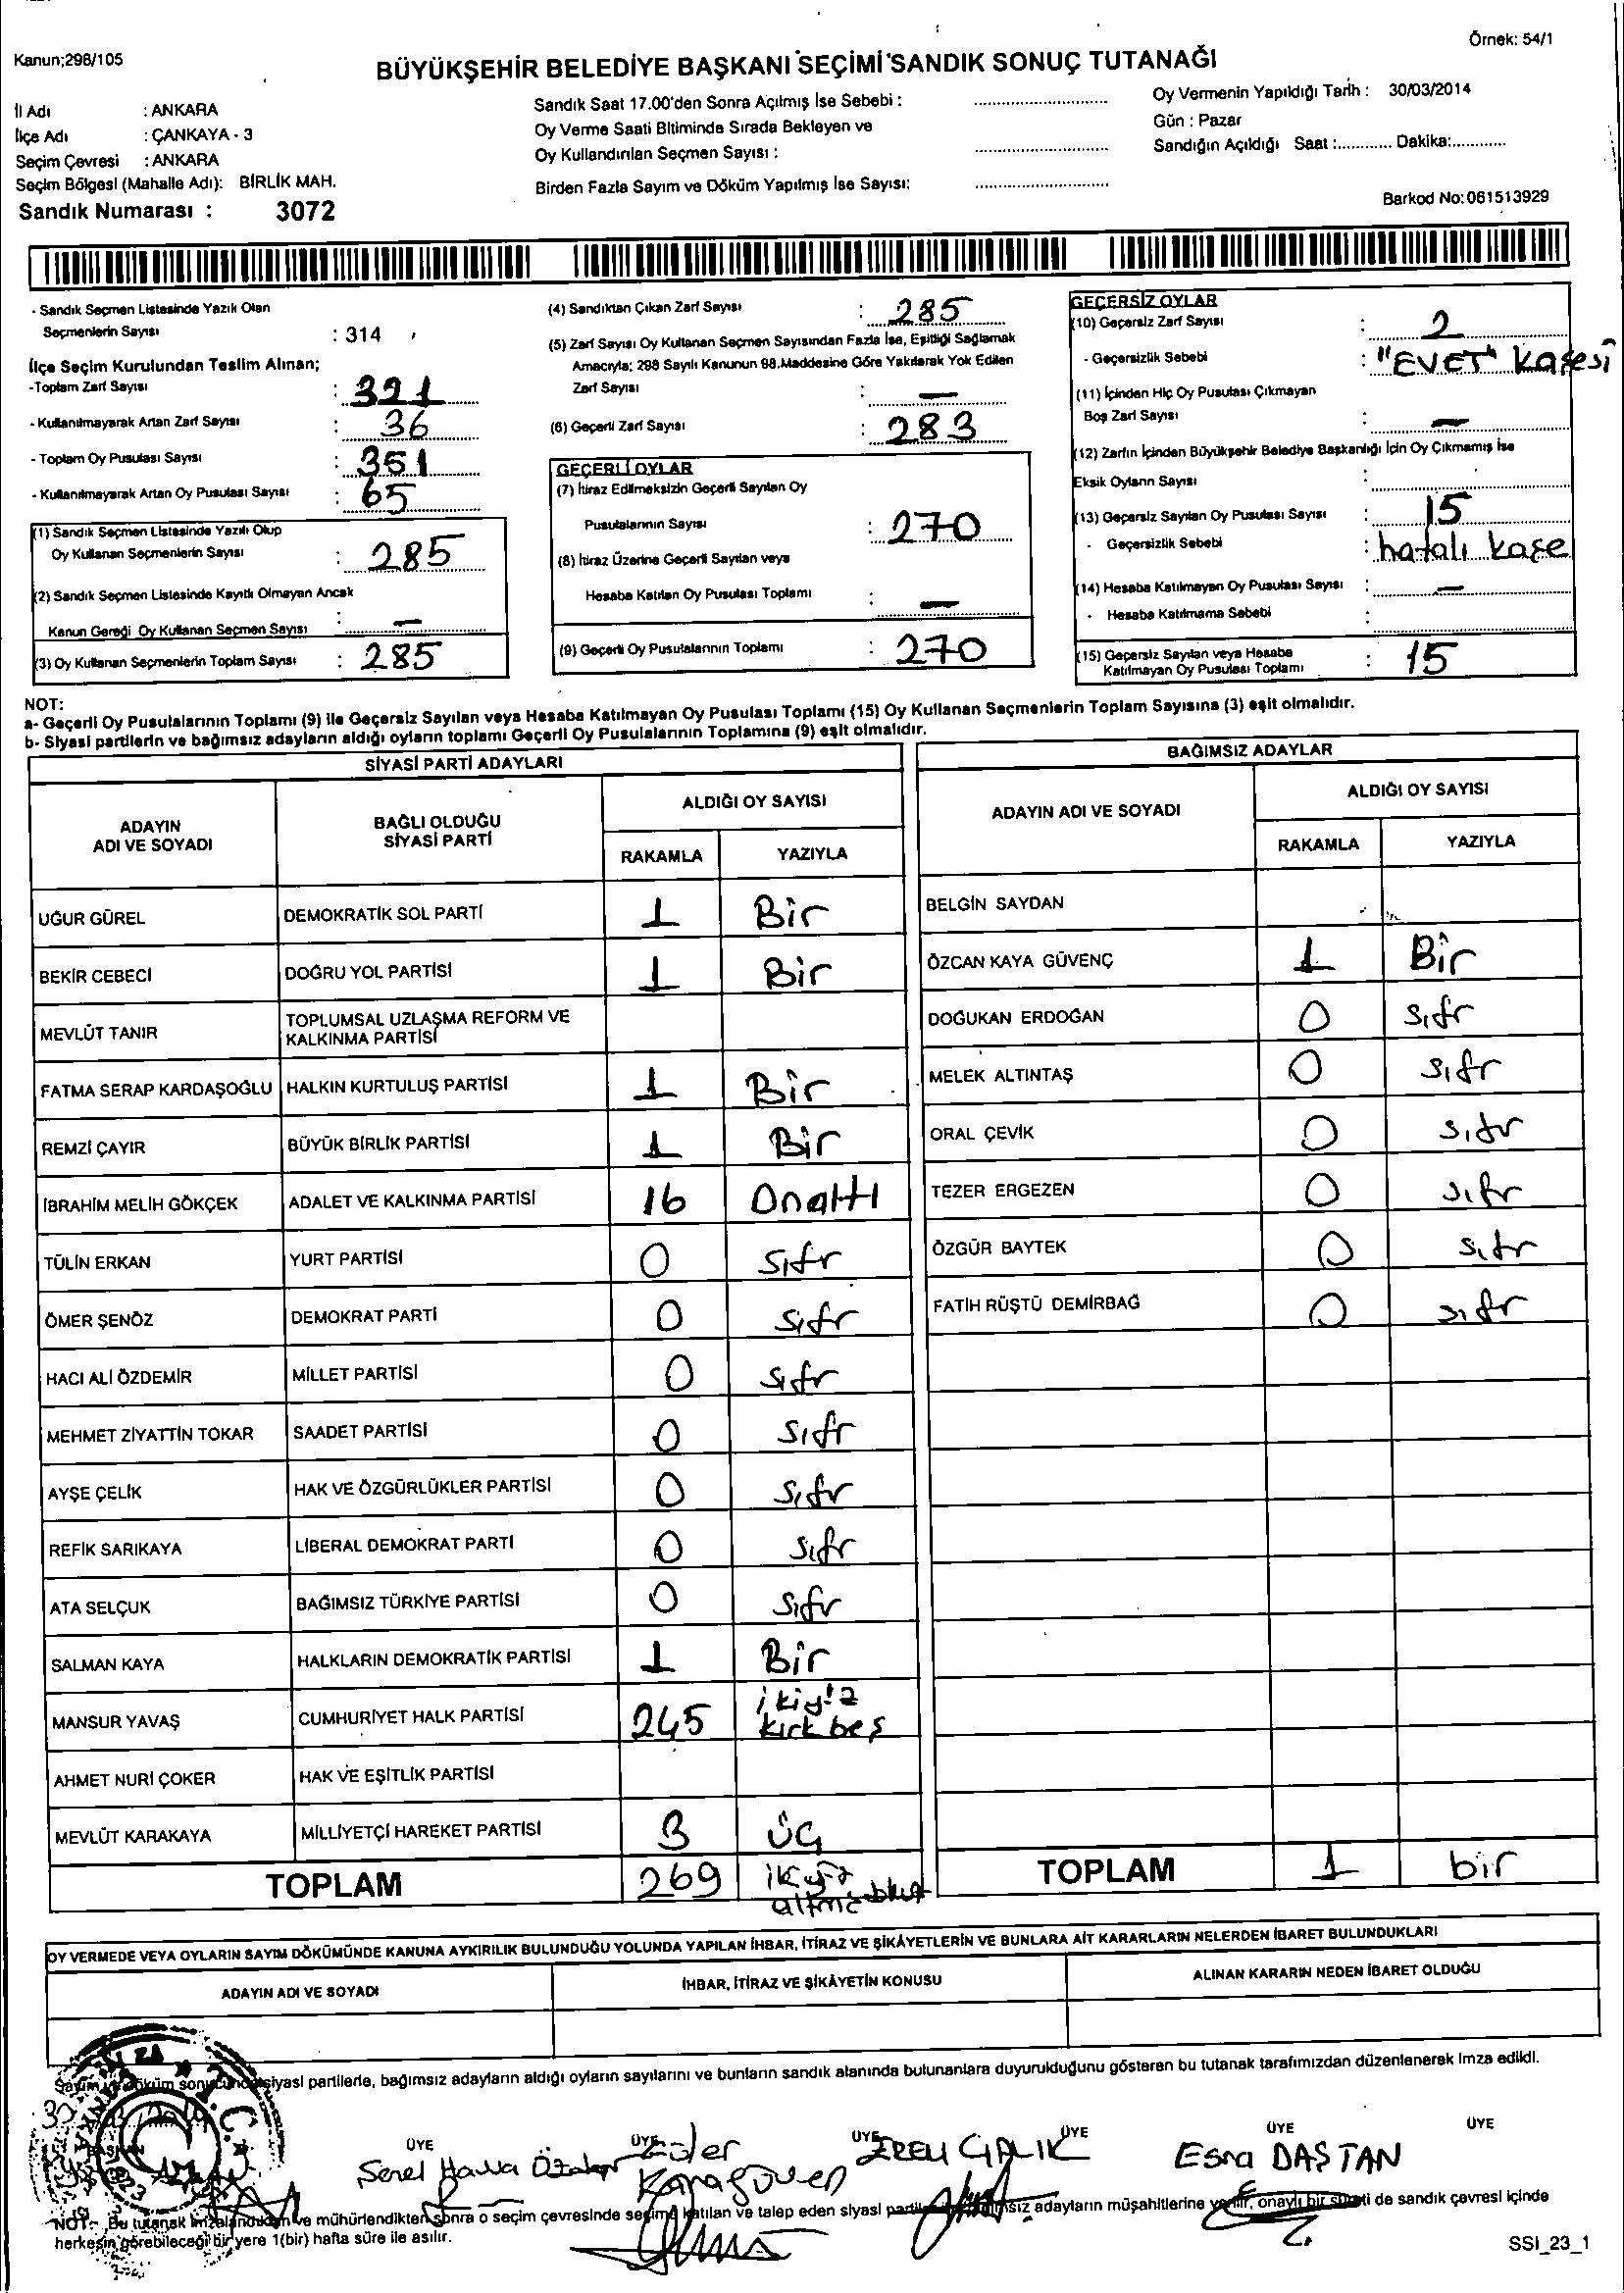 Kanun;298/105
Örnek: 54/1
BÜYÜKŞEHİR BELEDİYE BAŞKANI SEÇİMİ SANDIK SONUÇ TUTANAĞI
İl Adı : ANKARA
İlçe Adı : ÇANKAYA - 3
Seçim Çevresi : ANKARA
Seçim Bölgesi (Mahalle Adı): BİRLİK MAH.
Sandık Numarası : 3072
Sandık Saat 17.00'den Sonra Açılmış İse Sebebi :
Oy Verme Saati Bitiminde Sırada Bekleyen ve
Oy Kullandırılan Seçmen Sayısı :
Birden Fazla Sayım ve Döküm Yapılmış İse Sayısı:
Oy Vermenin Yapıldığı Tarih : 30/03/2014
Gün : Pazar
Sandığın Açıldığı Saat :............ Dakika:............
Barkod No:061513929
- Sandık Seçmen Listesinde Yazılı Olan
Seçmenlerin Sayısı : 314
İlçe Seçim Kurulundan Teslim Alınan;
-Toplam Zarf Sayısı : 321
- Kullanılmayarak Artan Zarf Sayısı : 36
- Toplam Oy Pusulası Sayısı : 351
- Kullanılmayarak Artan Oy Pusulası Sayısı : 65
(1) Sandık Seçmen Listesinde Yazılı Olup
Oy Kullanan Seçmenlerin Sayısı : 285
(2) Sandık Seçmen Listesinde Kayıtlı Olmayan Ancak
Kanun Gereği Oy Kullanan Seçmen Sayısı : —
(3) Oy Kullanan Seçmenlerin Toplam Sayısı : 285
(4) Sandıktan Çıkan Zarf Sayısı : 285
(5) Zarf Sayısı Oy Kullanan Seçmen Sayısından Fazla İse, Eşitliği Sağlamak
Amacıyla; 298 Sayılı Kanunun 98.Maddesine Göre Yakılarak Yok Edilen
Zarf Sayısı : —
(6) Geçerli Zarf Sayısı : 283
GEÇERLİ OYLAR
(7) İtiraz Edilmeksizin Geçerli Sayılan Oy
Pusulalarının Sayısı : 270
(8) İtiraz Üzerine Geçerli Sayılan veya
Hesaba Katılan Oy Pusulası Toplamı : —
(9) Geçerli Oy Pusulalarının Toplamı : 270
GEÇERSİZ OYLAR
(10) Geçersiz Zarf Sayısı : 2
- Geçersizlik Sebebi : "EVET" Kaşesi
(11) İçinden Hiç Oy Pusulası Çıkmayan
Boş Zarf Sayısı : —
(12) Zarfın İçinden Büyükşehir Belediye Başkanlığı İçin Oy Çıkmamış İse
Eksik Oyların Sayısı :
(13) Geçersiz Sayılan Oy Pusulası Sayısı : 15
- Geçersizlik Sebebi : hatalı kaşe
(14) Hesaba Katılmayan Oy Pusulası Sayısı : —
- Hesaba Katılmama Sebebi :
(15) Geçersiz Sayılan veya Hesaba
Katılmayan Oy Pusulası Toplamı : 15
NOT:
a- Geçerli Oy Pusulalarının Toplamı (9) ile Geçersiz Sayılan veya Hesaba Katılmayan Oy Pusulası Toplamı (15) Oy Kullanan Seçmenlerin Toplam Sayısına (3) eşit olmalıdır.
b- Siyasi partilerin ve bağımsız adayların aldığı oyların toplamı Geçerli Oy Pusulalarının Toplamına (9) eşit olmalıdır.
SİYASİ PARTİ ADAYLARI
ADAYIN
ADI VE SOYADI
BAĞLI OLDUĞU
SİYASİ PARTİ
ALDIĞI OY SAYISI
RAKAMLA YAZIYLA
UĞUR GÜREL DEMOKRATİK SOL PARTİ 1 Bir
BEKİR CEBECİ DOĞRU YOL PARTİSİ 1 Bir
MEVLÜT TANIR TOPLUMSAL UZLAŞMA REFORM VE
KALKINMA PARTİSİ
FATMA SERAP KARDAŞOĞLU HALKIN KURTULUŞ PARTİSİ 1 Bir
REMZİ ÇAYIR BÜYÜK BİRLİK PARTİSİ 1 Bir
İBRAHİM MELİH GÖKÇEK ADALET VE KALKINMA PARTİSİ 16 Onaltı
TÜLİN ERKAN YURT PARTİSİ 0 Sıfr
ÖMER ŞENÖZ DEMOKRAT PARTİ 0 Sıfr
HACI ALİ ÖZDEMİR MİLLET PARTİSİ 0 Sıfr
MEHMET ZİYATTİN TOKAR SAADET PARTİSİ 0 Sıfr
AYŞE ÇELİK HAK VE ÖZGÜRLÜKLER PARTİSİ 0 Sıfr
REFİK SARIKAYA LİBERAL DEMOKRAT PARTİ 0 Sıfr
ATA SELÇUK BAĞIMSIZ TÜRKİYE PARTİSİ 0 Sıfr
SALMAN KAYA HALKLARIN DEMOKRATİK PARTİSİ 1 Bir
MANSUR YAVAŞ CUMHURİYET HALK PARTİSİ 245 ikiyüz
kırkbeş
AHMET NURİ ÇOKER HAK VE EŞİTLİK PARTİSİ
MEVLÜT KARAKAYA MİLLİYETÇİ HAREKET PARTİSİ 3 üç
TOPLAM 269 ikiyüz
altmışdokuz
BAĞIMSIZ ADAYLAR
ADAYIN ADI VE SOYADI
ALDIĞI OY SAYISI
RAKAMLA YAZIYLA
BELGİN SAYDAN
ÖZCAN KAYA GÜVENÇ 1 Bir
DOĞUKAN ERDOĞAN 0 Sıfr
MELEK ALTINTAŞ 0 Sıfr
ORAL ÇEVİK 0 Sıfr
TEZER ERGEZEN 0 Sıfr
ÖZGÜR BAYTEK 0 Sıfr
FATİH RÜŞTÜ DEMİRBAĞ 0 Sıfr
TOPLAM 1 bir
OY VERMEDE VEYA OYLARIN SAYIM DÖKÜMÜNDE KANUNA AYKIRILIK BULUNDUĞU YOLUNDA YAPILAN İHBAR, İTİRAZ VE ŞİKÂYETLERİN VE BUNLARA AİT KARARLARIN NELERDEN İBARET BULUNDUKLARI
ADAYIN ADI VE SOYADI İHBAR, İTİRAZ VE ŞİKÂYETİN KONUSU ALINAN KARARIN NEDEN İBARET OLDUĞU
Sayım ve döküm sonucunda siyasi partilerle, bağımsız adayların aldığı oyların sayılarını ve bunların sandık alanında bulunanlara duyurukduğunu gösteren bu tutanak tarafımızdan düzenlenerek imza edildi.
T.C.
BAŞKAN ÜYE ÜYE ÜYE ÜYE ÜYE ÜYE
Karagüven
EREN ÇALIK
Esra DAŞTAN
NOT:- Bu tutanak imzalandıktan ve mühürlendikten sonra o seçim çevresinde seçime katılan ve talep eden siyasi parti adayların müşahitlerine verilir, onaylı bir sureti de sandık çevresi içinde
herkesin görebileceği bir yere 1(bir) hafta süre ile asılır.
SSI_23_1